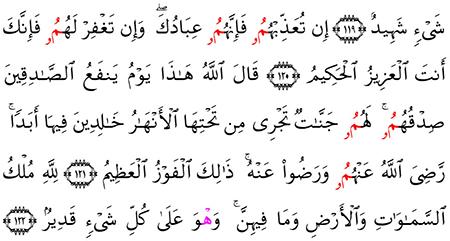 شَيْءٖ شَهِيدٌ ۝١١٩ إِن تُعَذِّبْهُمُۥ فَإِنَّهُمُۥ عِبَادُكَۖ وَإِن تَغْفِرْ لَهُمُۥ فَإِنَّكَ
أَنتَ ٱلْعَزِيزُ ٱلْحَكِيمُ ۝١٢٠ قَالَ ٱللَّهُ هَٰذَا يَوْمُ يَنفَعُ ٱلصَّٰدِقِينَ
صِدْقُهُمُۥۚ لَهُمُۥ جَنَّٰتٌ تَجْرِي مِن تَحْتِهَا ٱلْأَنْهَٰرُ خَٰلِدِينَ فِيهَا أَبَدًاۚ
رَّضِيَ ٱللَّهُ عَنْهُمُۥ وَرَضُوا۟ عَنْهُۚ ذَٰلِكَ ٱلْفَوْزُ ٱلْعَظِيمُ ۝١٢١ لِلَّهِ مُلْكُ
ٱلسَّمَٰوَٰتِ وَٱلْأَرْضِ وَمَا فِيهِنَّۚ وَهْوَ عَلَىٰ كُلِّ شَيْءٖ قَدِيرٌ ۝١٢٢